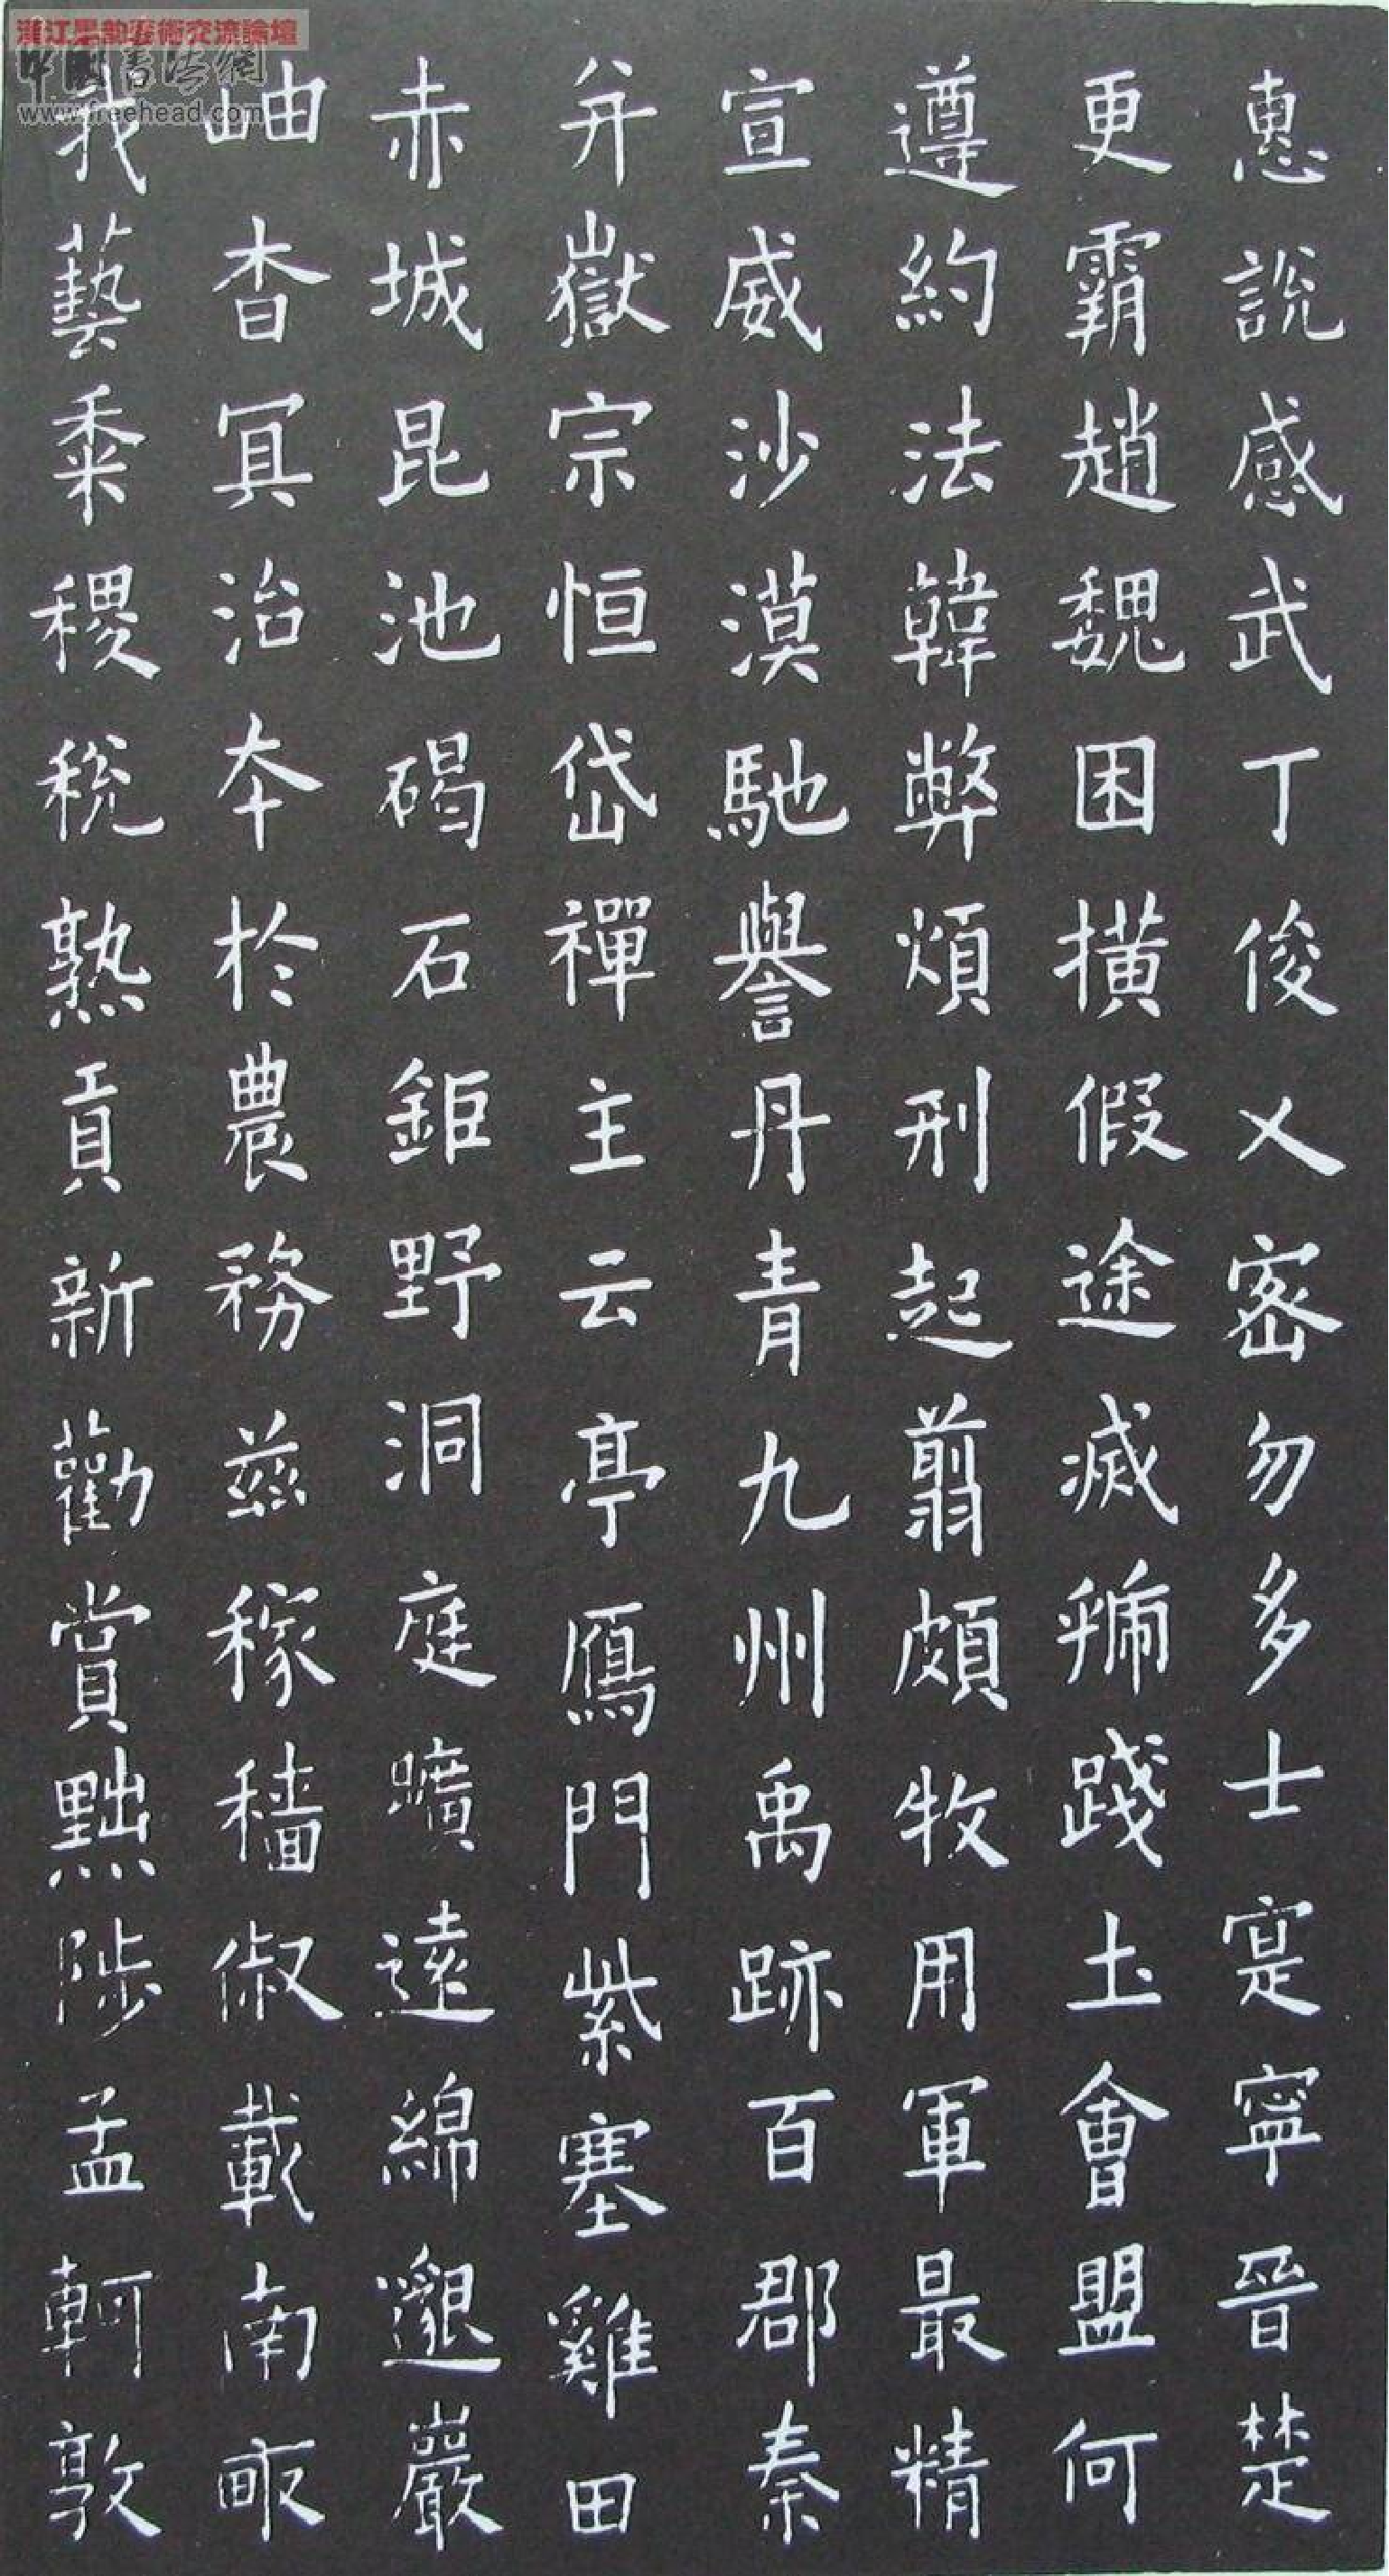 惠說感武丁俊乂密勿多士寔寧晉楚
更霸趙魏困橫假途滅虢踐土會盟何
遵約法韓弊煩刑起翦頗牧用軍最精
宣威沙漠馳譽丹青九州禹跡百郡秦
并嶽宗恒岱禪主云亭鴈門紫塞雞田
赤城昆池碣石鉅野洞庭曠遠綿邈巖
岫杳冥治本於農務茲稼穡俶載南畝
我藝黍稷稅熟貢新勸賞黜陟孟軻敦
浙江墨韵藝術交流論壇
中國書法網
www.freehead.com